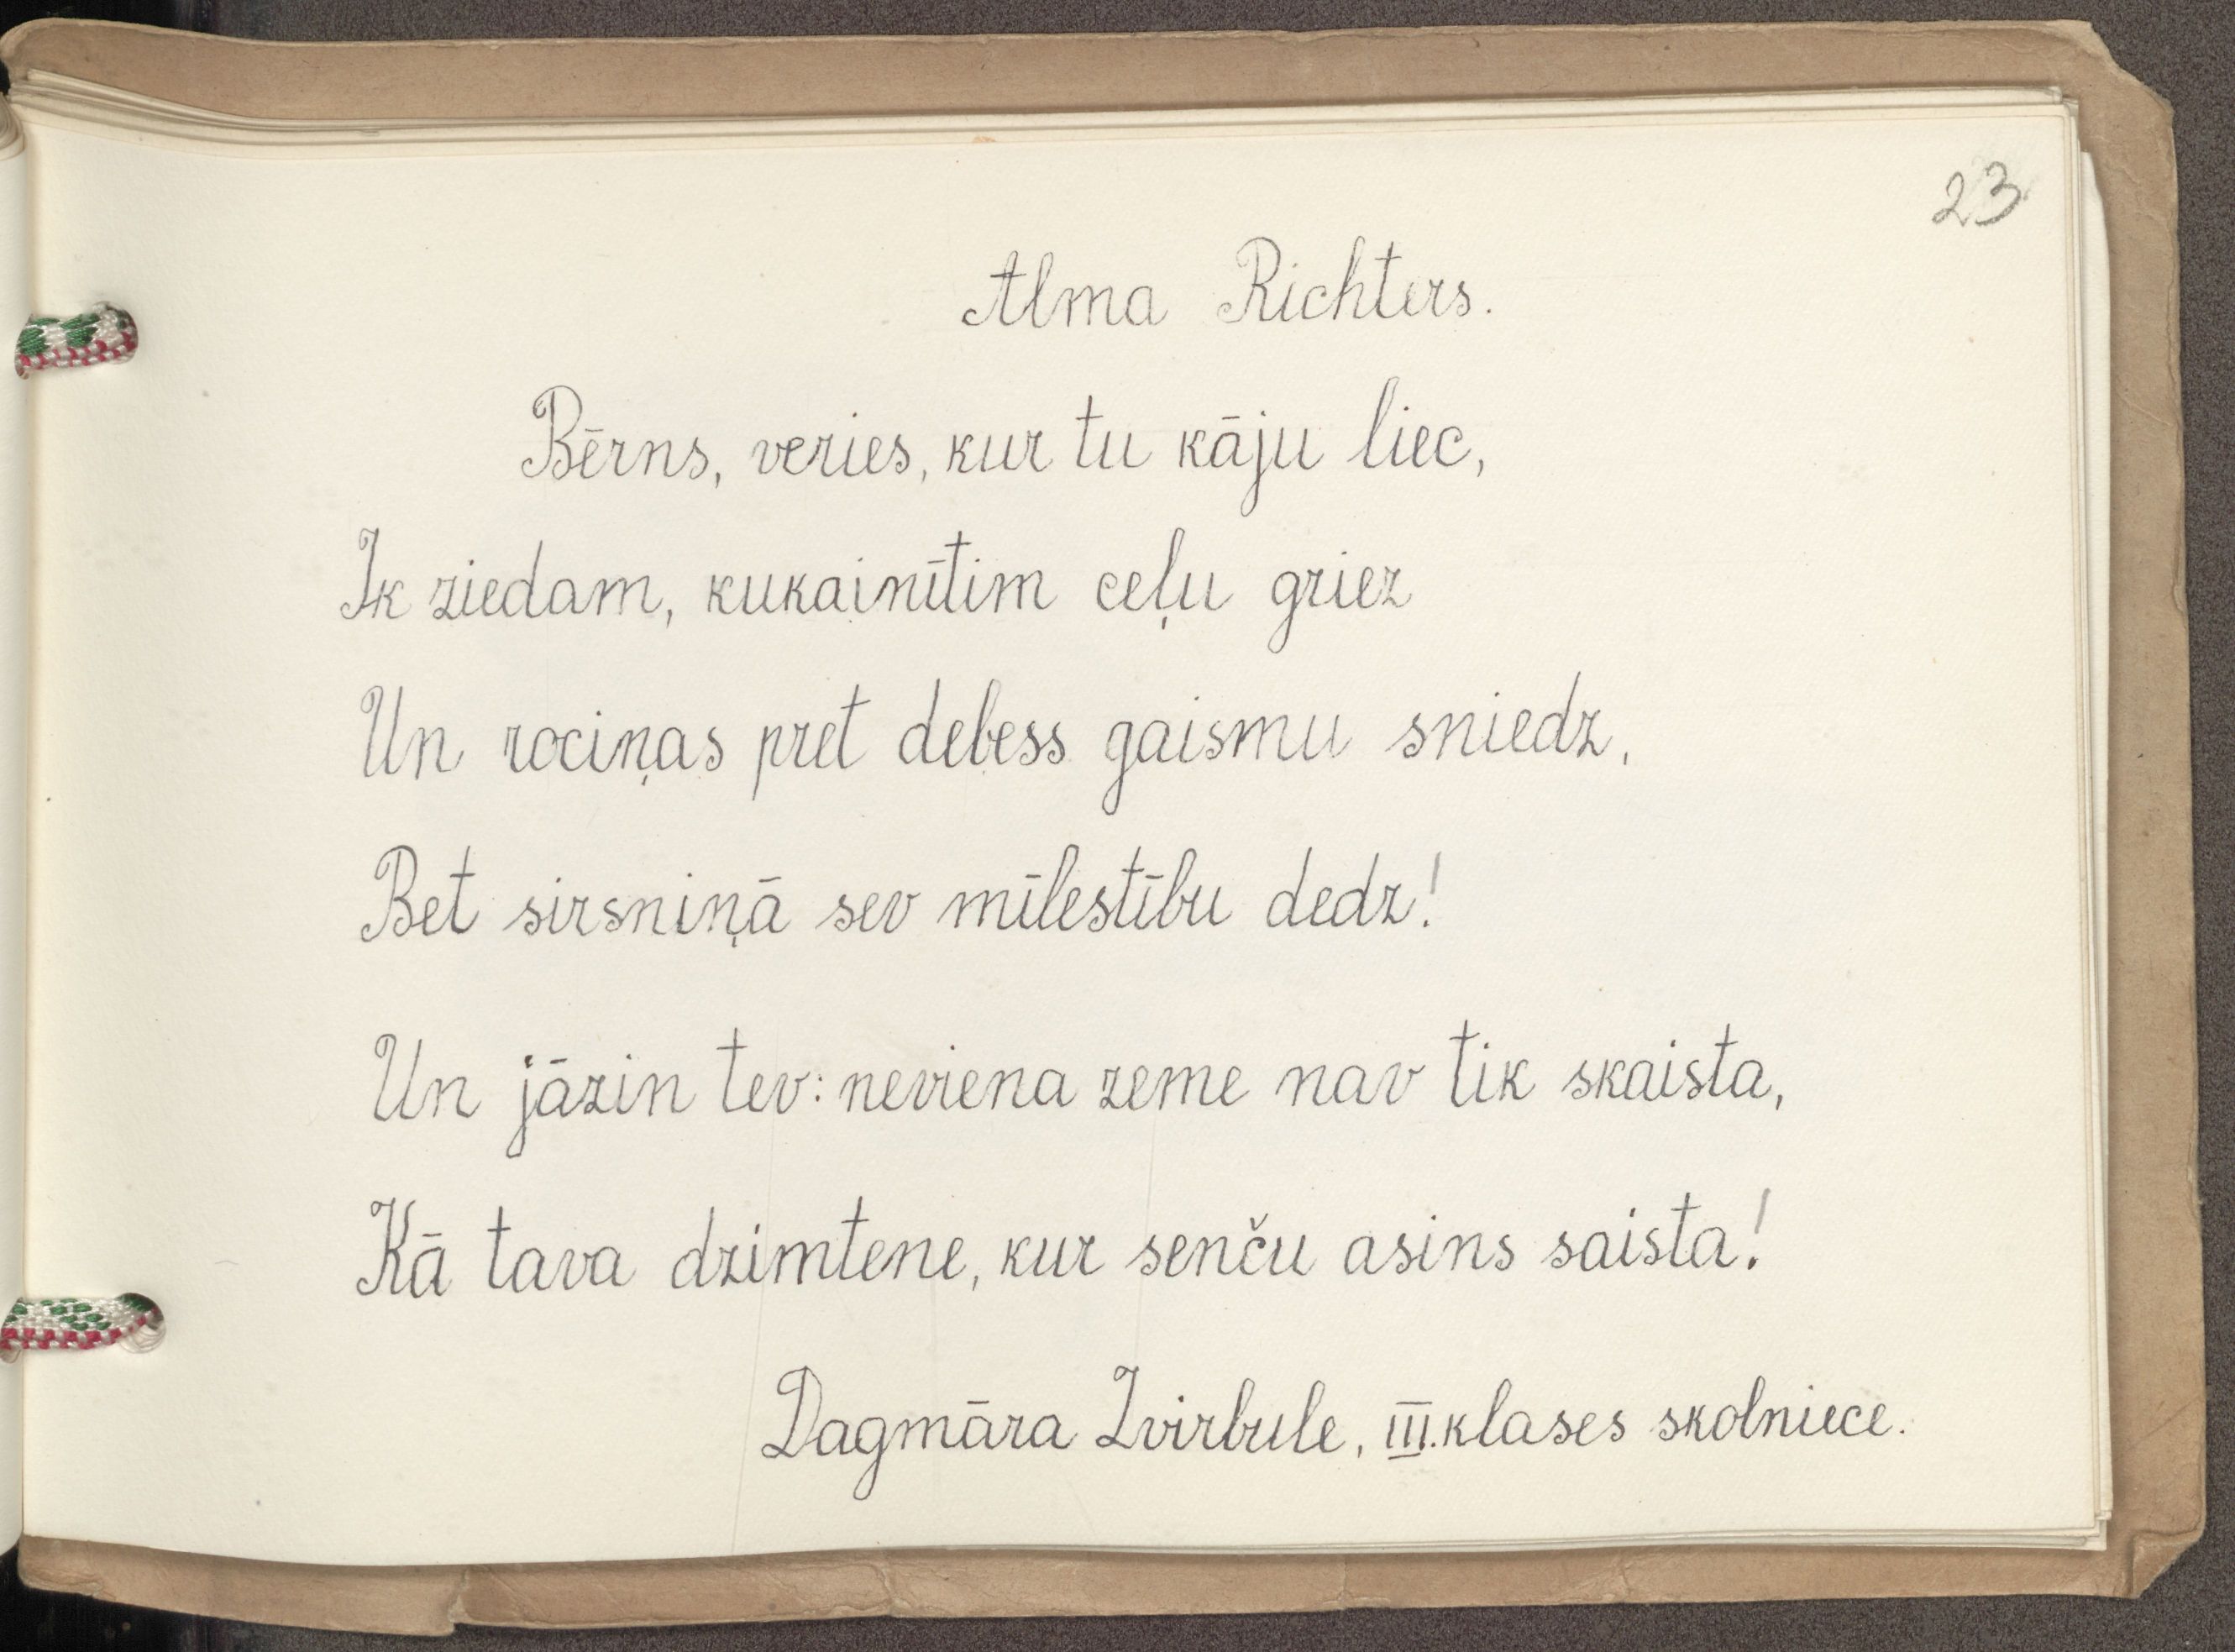 23
Alma Richters.
Bērns, veries, kur tu kāju liec,
Ik ziedam, kukainītim ceļu griez
Un rociņas pret debess gaismu sniedz,
Bet sirsniņā sev mīlestību dedz!
Un jāzin tev: neviena zeme nav tik skaista,
Kā tava dzimtene, kur senču asins saista!
Dagmāra Zvirbule, III. klases skolniece.